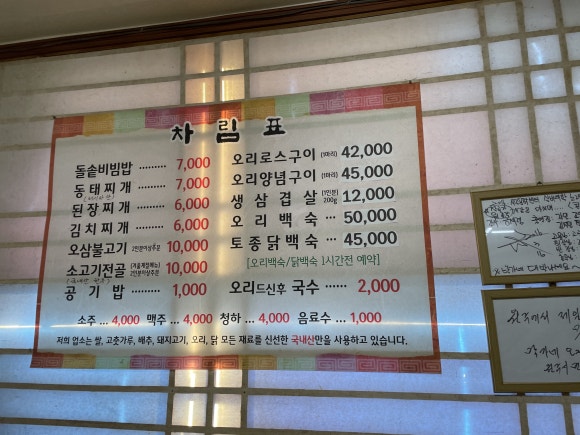 차 림 표
돌솥비빔밥 ········· 7,000
동태찌개 ········· 7,000
된장찌개 ········· 6,000
김치찌개 ········· 6,000
오삼불고기 2인분이상주문 10,000
소고기전골 (겨울계절메뉴) 2인분이상주문 10,000
공 기 밥 ········· 1,000
오리로스구이 (1마리) 42,000
오리양념구이 (1마리) 45,000
생 삼 겹 살 (1인분) 200g 12,000
오 리 백 숙 ··· 50,000
토종닭백숙 ··· 45,000
[오리백숙/닭백숙 1시간전 예약]
오리드신후 국수 ······ 2,000
소주 ··· 4,000 맥주 ··· 4,000 청하 ··· 4,000 음료수 ··· 1,000
저희 업소는 쌀, 고춧가루, 배추, 돼지고기, 오리, 닭 모든 재료를 신선한 국내산만을 사용하고 있습니다.